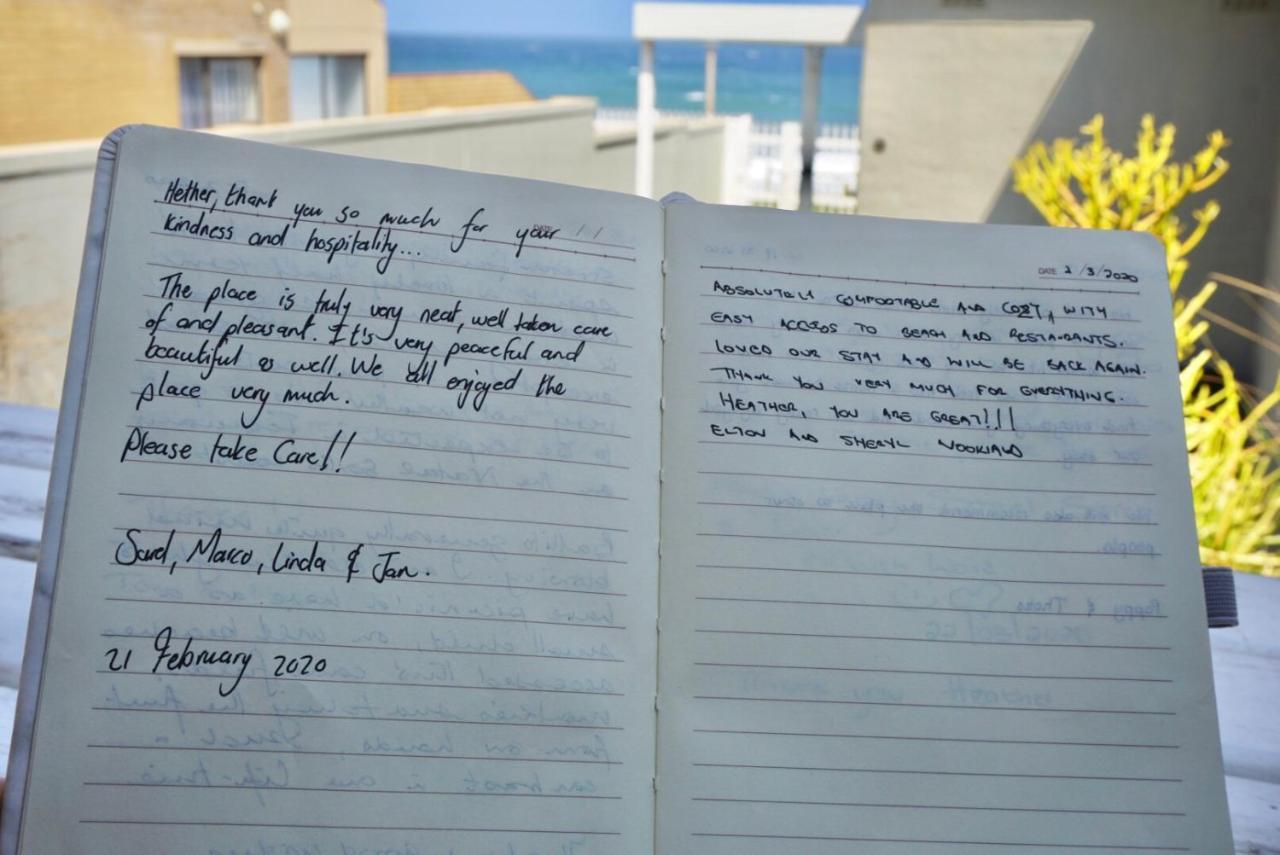 DATE / /
Hether, thank you so much for your
kindness and hospitality...
The place is truly very neat, well taken care
of and pleasant. It's very peaceful and
beautiful as well. We all enjoyed the
place very much.
Please take Care!!
Marco, Linda & Jan.
21 February 2020
DATE 2/3/2020
ABSOLUTELY COMFOOTABLE AND COZY, WITH
EASY ACCESS TO BEACH AND RESTAURANTS.
LOVED OUR STAY AND WILL BE BACK AGAIN.
THANK YOU VERY MUCH FOR EVERYTHING.
HEATHER, YOU ARE GREAT!!!
ELTON AND SHERYL